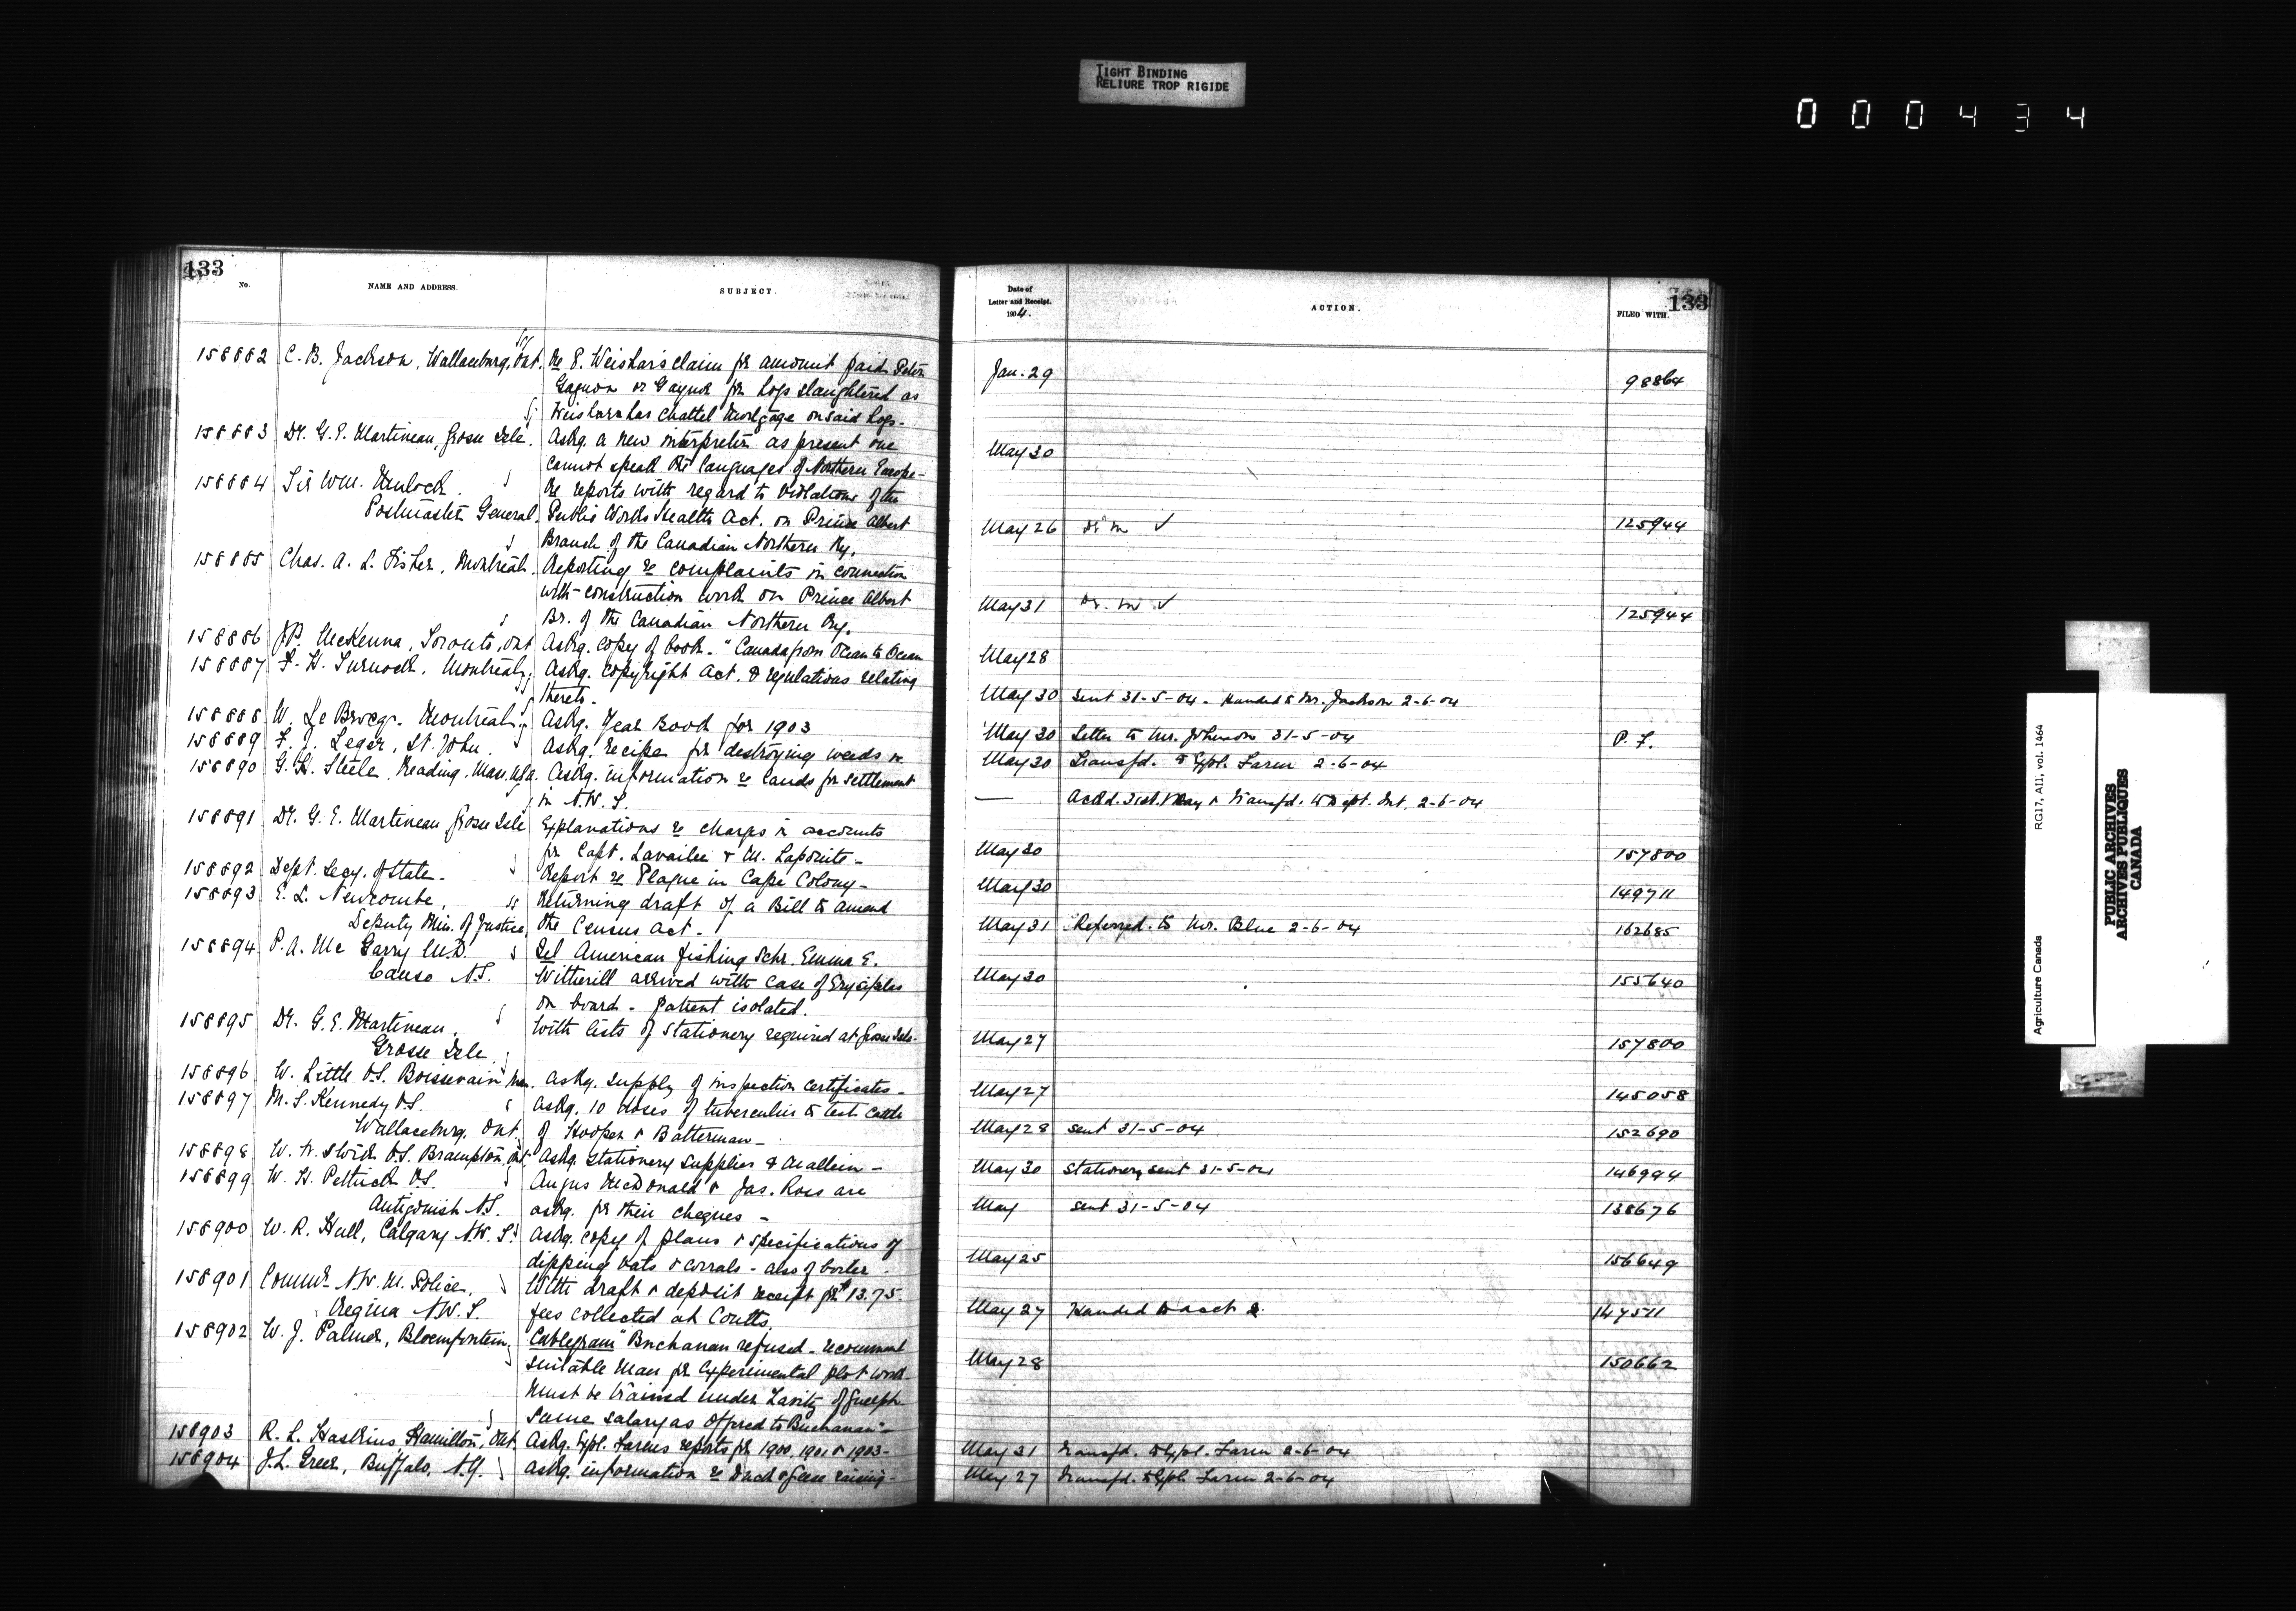 TIGHT BINDING
RELIURE TROP RIGIDE
000434
133
No.
NAME AND ADDRESS.
SUBJECT.
158882 C. B. Jackson, Wallaceburg, Ont. Re E. Weishar's claim for amount paid Peter
Gagnon or Gaynor for hogs slaughtered as
Weishar has chattel mortgage on said hogs.
158883 Dr. G. E. Martineau, Grosse Isle. Askg. a new interpreter as present one
cannot speak the languages of Northern Europe-
158884 Sir Wm. Mulock. Re reports with regard to violations of the
Postmaster General. Public Works Health Act. on Prince Albert
Branch of the Canadian Northern Ry.
158885 Chas. A. L. Fisher, Montreal. Reporting re complaints in connection
with construction work on Prince Albert
Br. of the Canadian Northern Ry.
158886 McKenna, Toronto, Ont Askg. copy of book - "Canada from Ocean to Ocean
158887 F. H. Turnock, Montreal, Askg. copyright Act. & regulations relating
thereto.
158888 W. Le Brocq. Montreal. Askg. Year Book for 1903
158889 F. J. Leger, St. John. Askg. recipe for destroying weeds
158890 G. H. Steele, Reading, Mass. USA. Askg. information re lands for settlement
in N.W.T.
158891 Dr. G. E. Martineau Grosse Isle Explanations re charges in accounts
for Capt. Lavailee & M. Lapointe -
158892 Dept. Secy. of State. Report re Plague in Cape Colony -
158893 E. L. Newcombe, Returning draft of a Bill to amend
Deputy Min. of Justice, the Census Act.
158894 P. A. McGarry M.D. Tel American fishing Schr. Emma E.
Canso N.S. Witherill arrived with case of Erysipelas
on board - patient isolated.
158895 Dr. G. E. Martineau, With lists of stationery required at Grosse Isle-
Grosse Isle
158896 W. Little V.S. Boissevain Man. Askg. supply of inspection certificates -
158897 M. S. Kennedy V.S. Askg. 10 doses of tuberculin to test cattle
Wallaceburg, Ont. of Hooper & Batterman -
158898 W. N. Swick V.S. Brampton, Ont. Askg. stationery supplies & mallein -
158899 W. H. Pettick V.S. Angus McDonald & Jas. Ross are
Antigonish N.S. askg. for their cheques -
158900 W. R. Hull, Calgary N.W.T. Askg. copy of plans & specifications of
dipping vats & corrals - also of boiler.
158901 Commr. N.W.M. Police, With draft & deposit receipt for $13.75.
Regina N.W.T. fees collected at Coutts.
158902 W. J. Palmer, Bloemfontein, Cablegram "Buchanan refused - recommend
suitable man for Experimental plot work
must be trained under Zavitz of Guelph
Same salary as offered to Buchanan" -
158903 R. L. Haskins, Hamilton, Ont. Askg. Expl. Farms reports for 1900, 1901 & 1903 -
158904 J. L. Greer, Buffalo, N.Y. Askg. information re Duck & Geese raising -
Date of
Letter and Receipt.
1904.
ACTION.
FILED WITH.
133
Jan. 29 98864
May 30
May 26 Dr. M ✓ 125944
May 31 Dr. M ✓ 125944
May 28
May 30 Sent 31-5-04 - Handed to Mr. Jackson 2-6-04
May 30 Letter to Mr. Johnson 31-5-04 P. F.
May 30 Transfd. to Expl. Farm 2-6-04
— Ackd. 31st. May & Transfd. to Dept. Int. 2-6-04
May 30 157800
May 30 149711
May 31 Referred to Mr. Blue 2-6-04 162685
May 30 155640
May 27 157800
May 27 145058
May 28 Sent 31-5-04 152690
May 30 Stationery sent 31-5-04 146994
May sent 31-5-04 138676
May 25 156649
May 27 Handed to acct 147511
May 28 150662
May 31 Transfd. to Expl. Farm 2-6-04
May 27 Transfd. to Expl. Farm 2-6-04
Agriculture Canada
RG17, AII, vol. 1464
PUBLIC ARCHIVES
ARCHIVES PUBLIQUES
CANADA